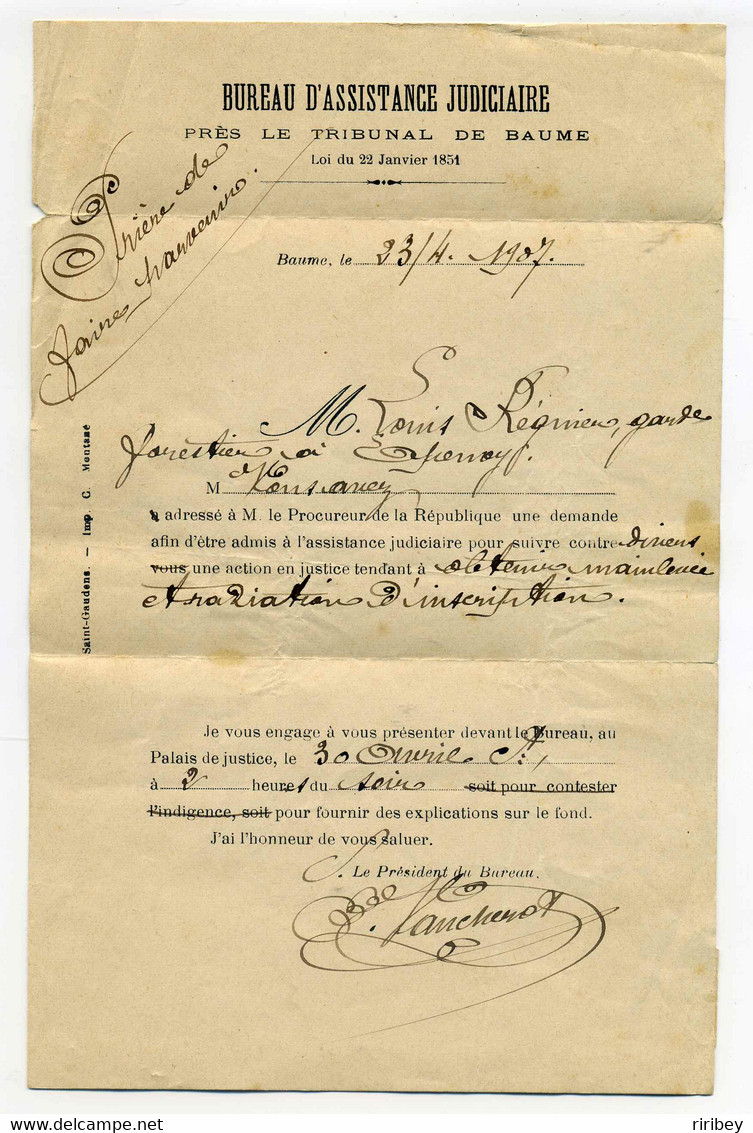 BUREAU D'ASSISTANCE JUDICIAIRE
PRÈS LE TRIBUNAL DE BAUME
Loi du 22 Janvier 1851
Prière de
faire parvenir.
Baume, le 23/4. 1907.
M. Louis Régnier, garde
forestier à
M Vous avez
a adressé à M. le Procureur de la République une demande
afin d'être admis à l'assistance judiciaire pour suivre contre divers
vous une action en justice tendant à obtenir mainlevée
et radiation d'inscription.
Je vous engage à vous présenter devant le Bureau, au
Palais de justice, le 30 Avril
à 2 heures du soir soit pour contester
l'indigence, soit pour fournir des explications sur le fond.
J'ai l'honneur de vous saluer.
Le Président du Bureau.
Saint-Gaudens. — Imp. C. Montané
riribey